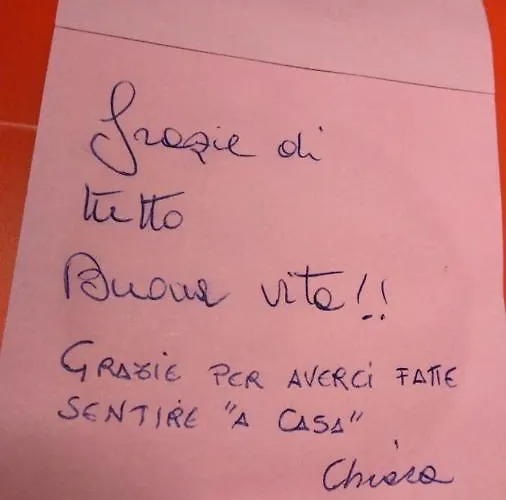 Grazie di
tutto
Buona vita!!
GRAZIE PER AVERCI FATTE
SENTIRE "A CASA"
Chiara